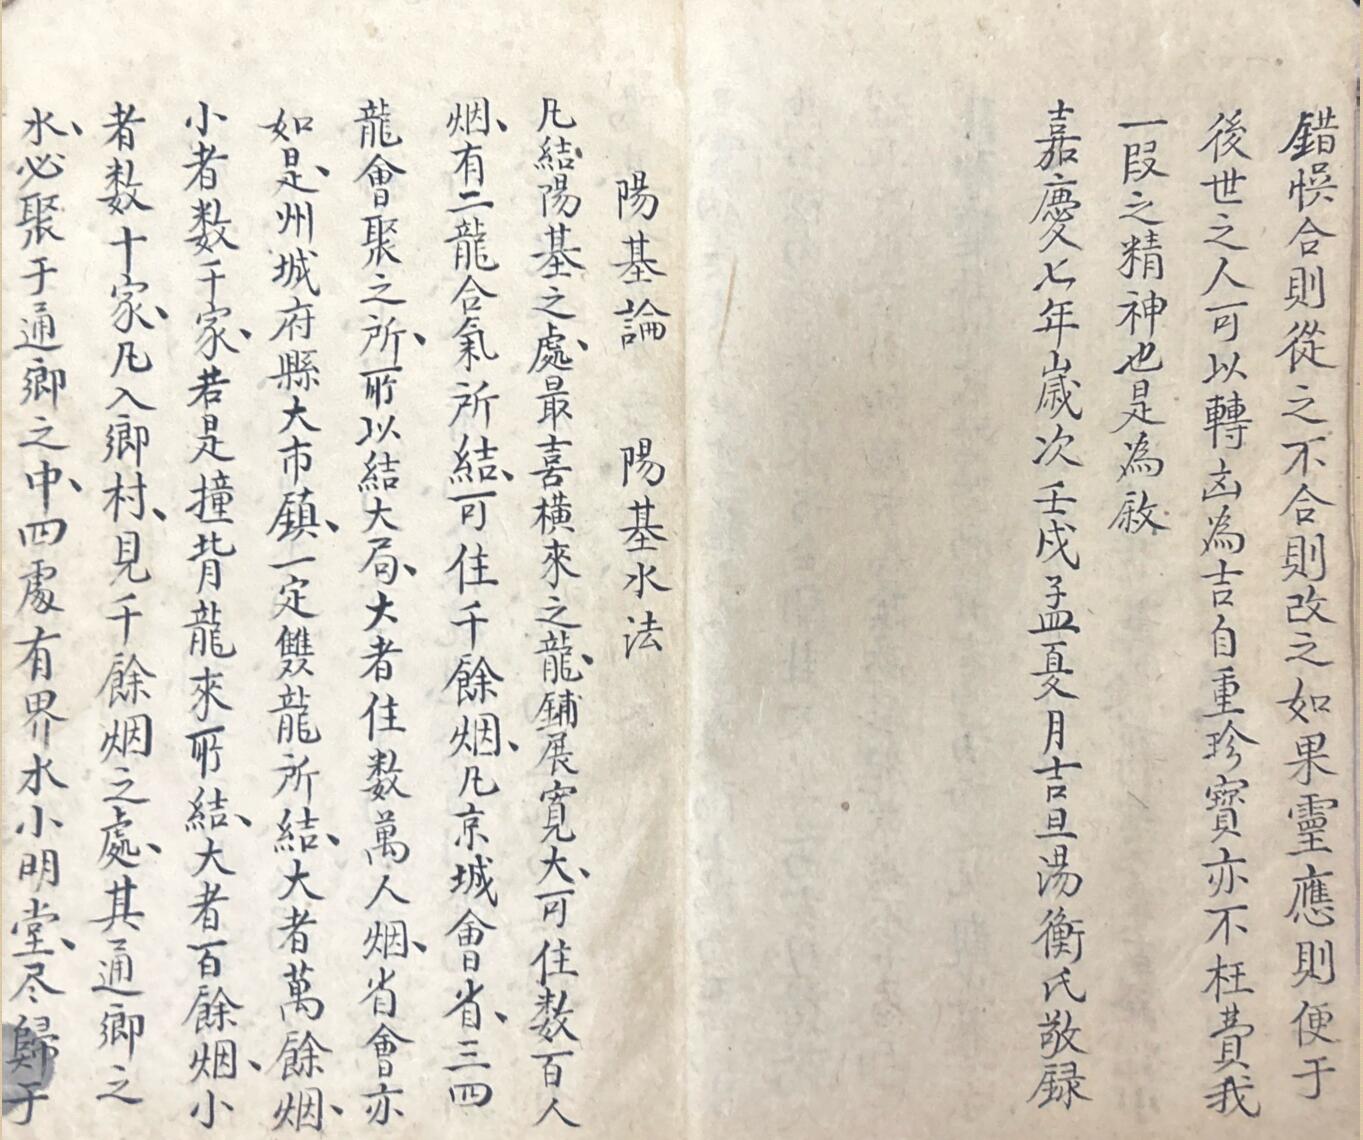 錯悞合則從之不合則改之如果靈應則便于
後世之人可以轉凶為吉自重珍寶亦不枉費我
一叚之精神也是為敘
嘉慶七年歲次壬戌孟夏月吉旦湯衡氏敬録
陽基論　陽基水法
凡結陽基之處、最喜横來之龍、鋪展寬大、可住数百人
烟、有二龍合氣所結、可住千餘烟、凡京城會省、三四
龍會聚之所、所以結大局、大者住数萬人烟、省會亦
如是、州城府縣大市鎮、一定雙龍所結、大者萬餘烟、
小者数千家、若是撞背龍來所結、大者百餘烟、小
者数十家、凡入鄉村、見千餘烟之處、其通鄉之
水、必聚于通鄉之中、四處有界水小明堂、尽歸于